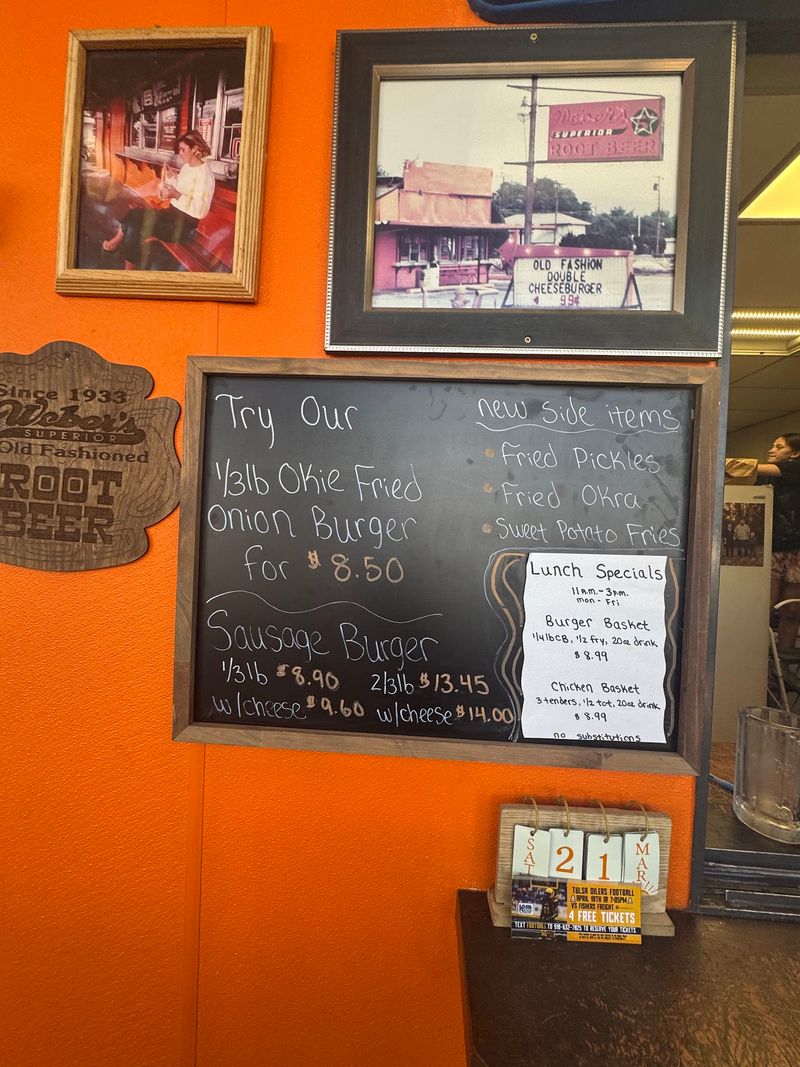 Weber's
SUPERIOR
ROOT BEER
OLD FASHION
DOUBLE
CHEESEBURGER
99¢
Since 1933
Weber's
SUPERIOR
Old Fashioned
ROOT
BEER
Try Our
1/3lb Okie Fried
Onion Burger
for $8.50
Sausage Burger
1/3lb $8.90 2/3lb $13.45
w/cheese $9.60 w/cheese $14.00
new side items
Fried Pickles
Fried Okra
Sweet Potato Fries
Lunch Specials
11a.m.-3p.m.
mon-Fri
Burger Basket
1/4lbCB, 1/2 fry, 20oz drink
$8.99
Chicken Basket
3 tenders, 1/2 tot, 20oz drink
$8.99
no substitutions
SAT 21 MAR
TULSA OILERS FOOTBALL
APRIL 18TH @ 7:05PM
VS FISHERS FREIGHT
4 FREE TICKETS
TEXT FOOTBALL TO 918-632-7825 TO RESERVE YOUR TICKETS